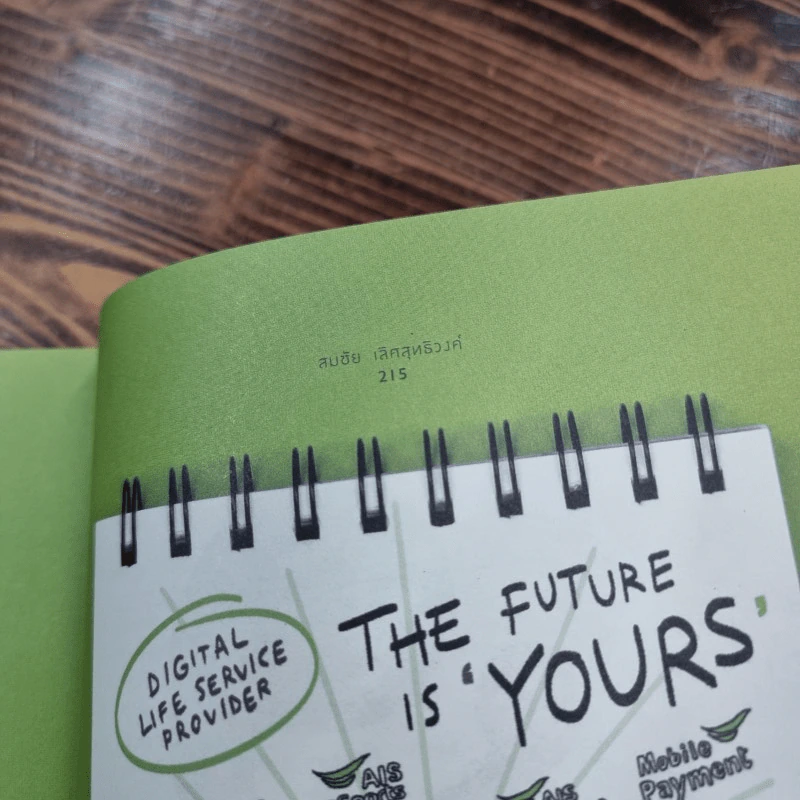 สมชัย เลิศสุทธิวงค์
215
THE FUTURE
IS 'YOURS'
DIGITAL
LIFE SERVICE
PROVIDER
AIS
Sports
AIS
Mobile
Payment